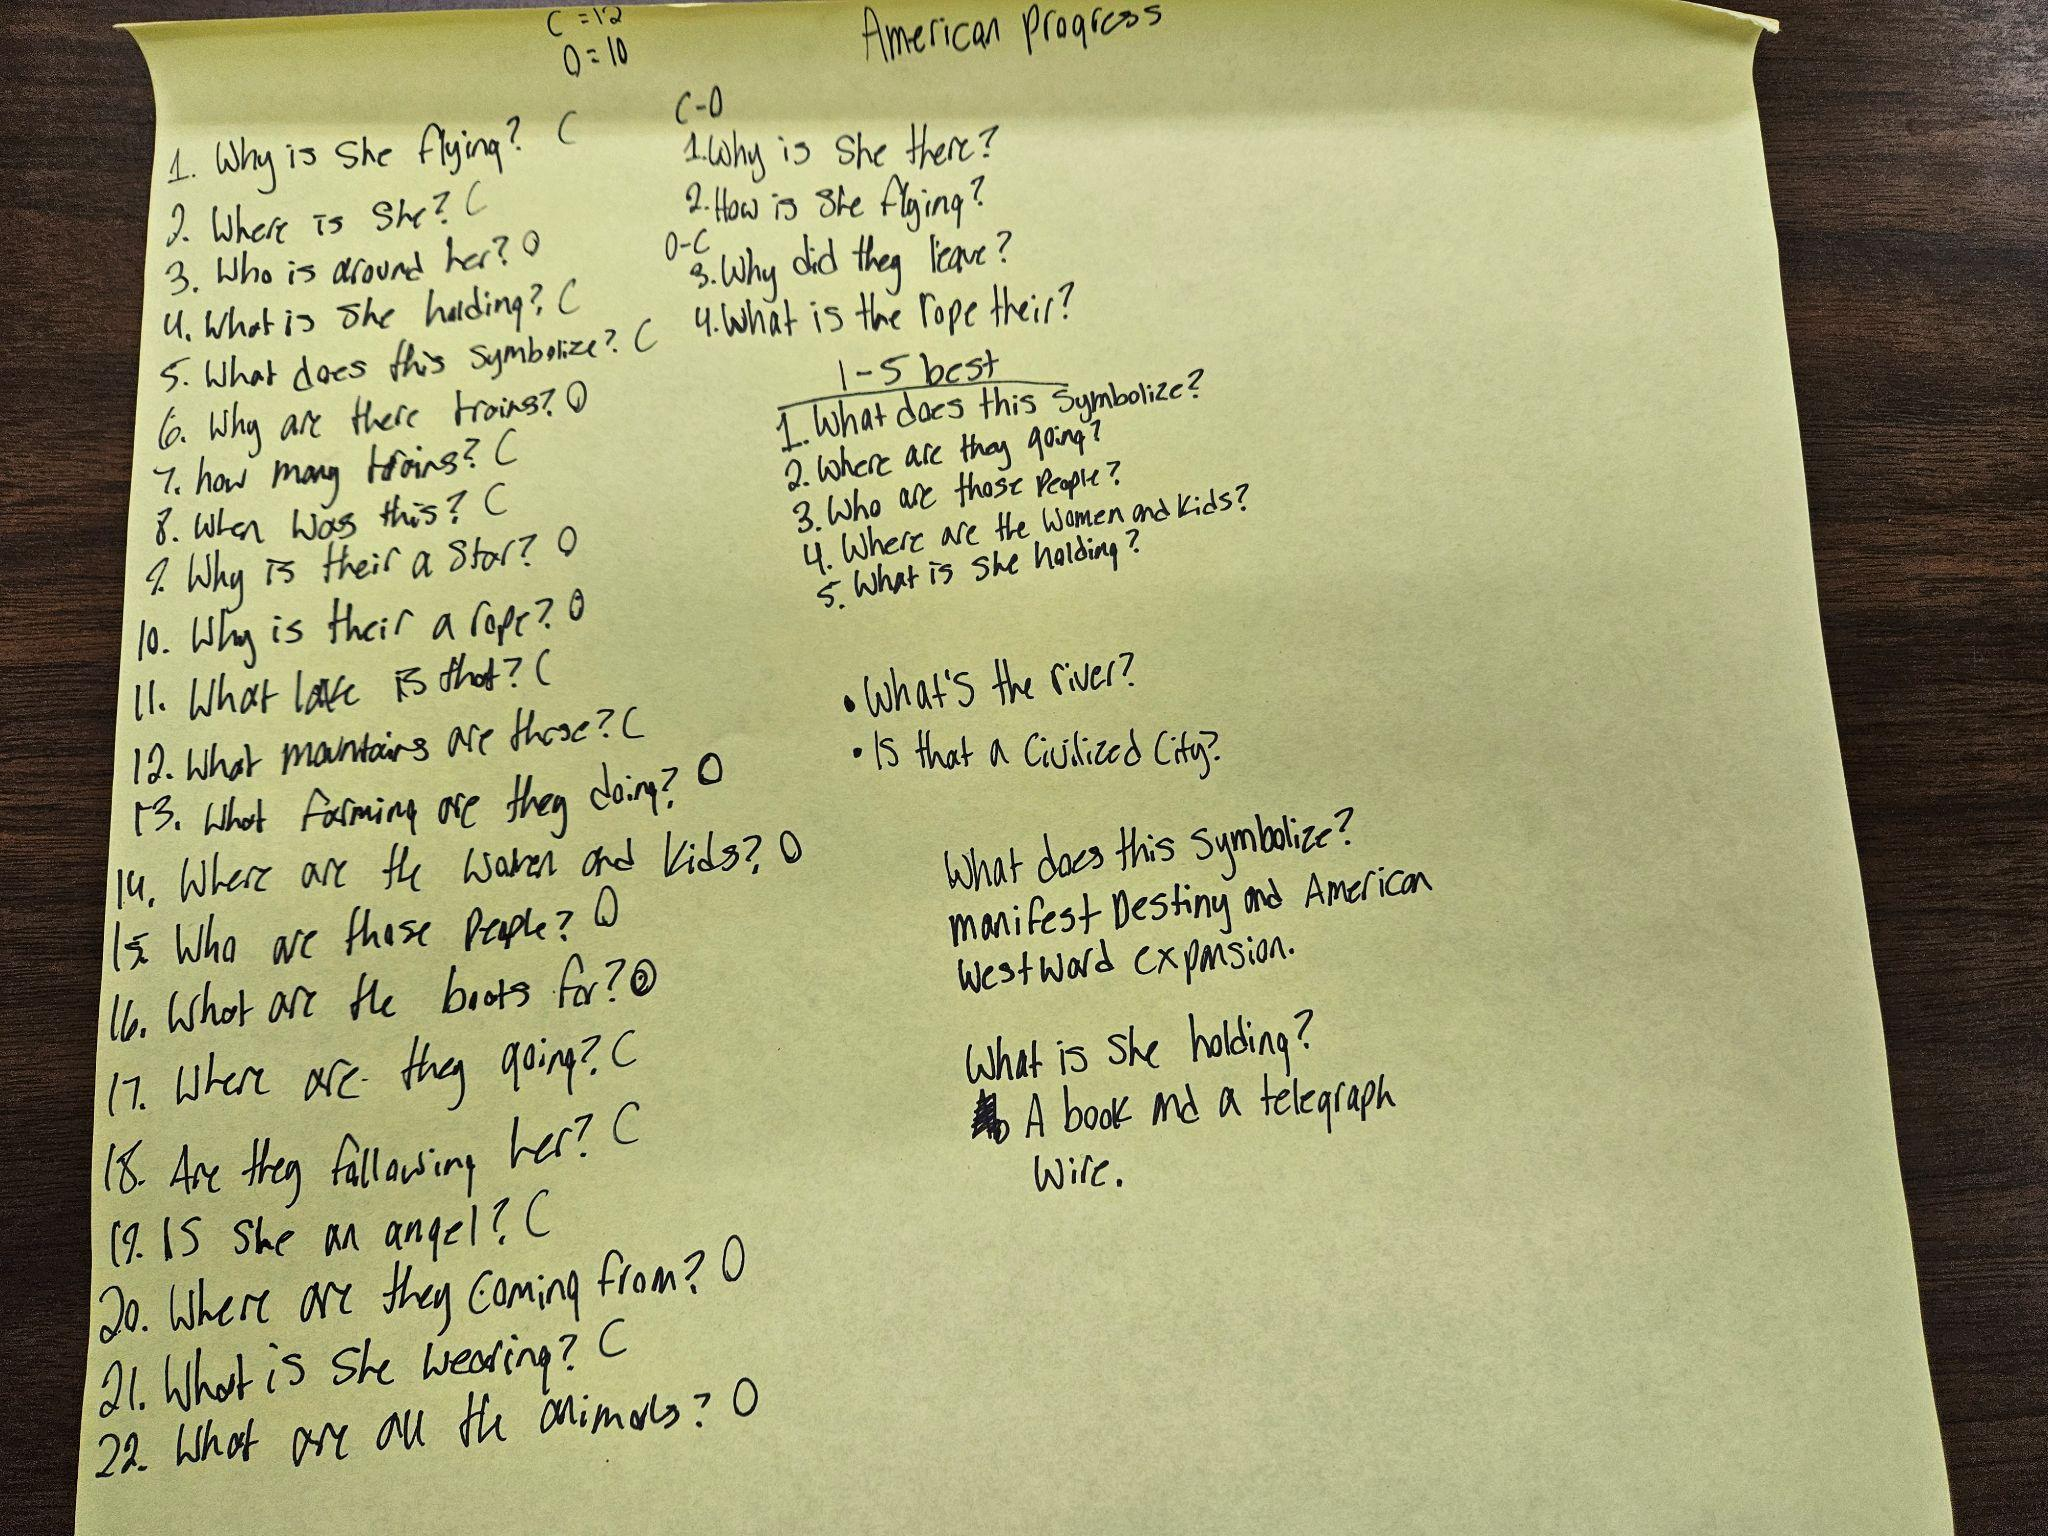 C = 12
O = 10
American Progress
1. Why is She flying? C
2. Where is She? C
3. Who is around her? O
4. What is She holding? C
5. What does this Symbolize? C
6. Why are there trains? O
7. how many trains? C
8. When was this? C
9. Why is their a Star? O
10. Why is their a rope? O
11. What lake is that? C
12. What mountains are those? C
13. What farming are they doing? O
14. Where are the Women and Kids? O
15. Who are those People? O
16. What are the boats for? O
17. Where are they going? C
18. Are they following her? C
19. Is She an angel? C
20. Where are they Coming from? O
21. What is She Wearing? C
22. What are all the animals? O
C-O
1. Why is She there?
2. How is She flying?
O-C
3. Why did they leave?
4. What is the rope their?
1-5 best
1. What does this Symbolize?
2. Where are they going?
3. Who are those People?
4. Where are the Women and Kids?
5. What is She holding?
• What's the river?
• Is that a Civilized City?
What does this Symbolize?
manifest Destiny and American
Westward expansion.
What is She holding?
A book and a telegraph
Wire.